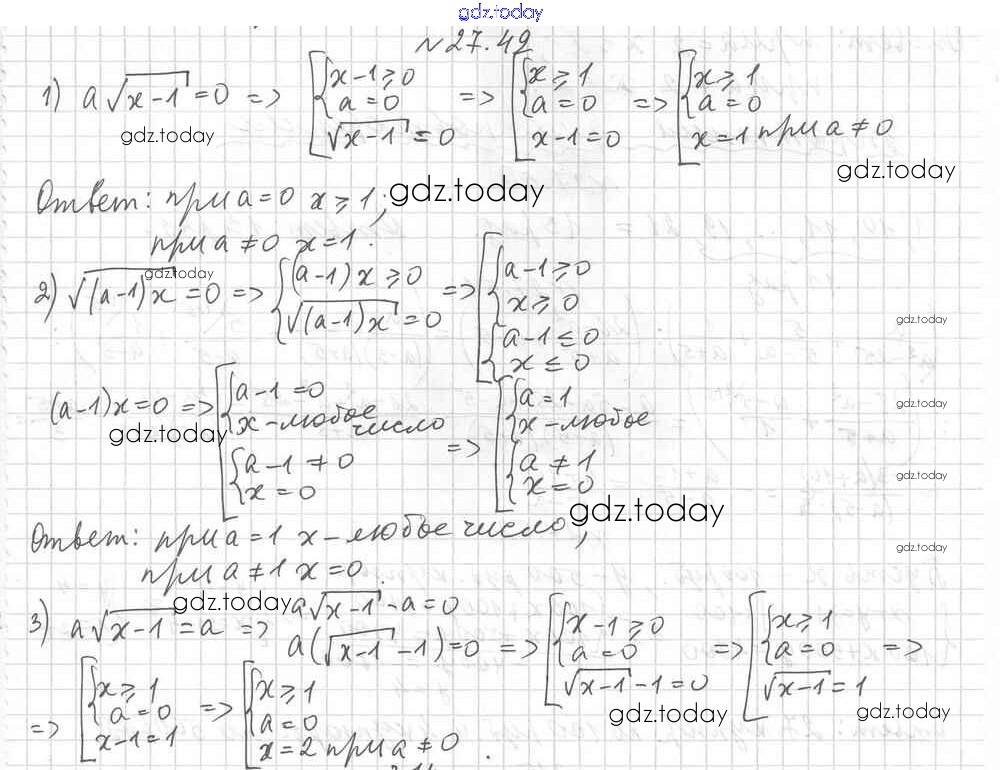 gdz.today
№27.42
1) a√(x-1) = 0 => [{x-1≥0, a=0; √(x-1) = 0 => [{x≥1, a=0; x-1=0 => [{x≥1, a=0; x=1 при a≠0
gdz.today
gdz.today
Ответ: при a=0 x≥1; gdz.today
при a≠0 x=1.
gdz.today
2) √((a-1)x) = 0 => {(a-1)x≥0, √((a-1)x) = 0 => [{a-1≥0, x≥0; {a-1≤0, x≤0
gdz.today
(a-1)x=0 => [{a-1=0, x-любое число; {a-1≠0, x=0 => [{a=1, x-любое; {a≠1, x=0
gdz.today
gdz.today
gdz.today
gdz.today
Ответ: при a=1 x-любое число;
gdz.today
при a≠1 x=0.
gdz.today
3) a√(x-1) = a => a√(x-1) - a = 0
a(√(x-1) - 1) = 0 => [{x-1≥0, a=0; √(x-1) - 1 = 0 => [{x≥1, a=0; √(x-1) = 1 =>
gdz.today
gdz.today
=> [{x≥1, a=0; x-1=1 => [{x≥1, a=0; x=2 при a≠0.